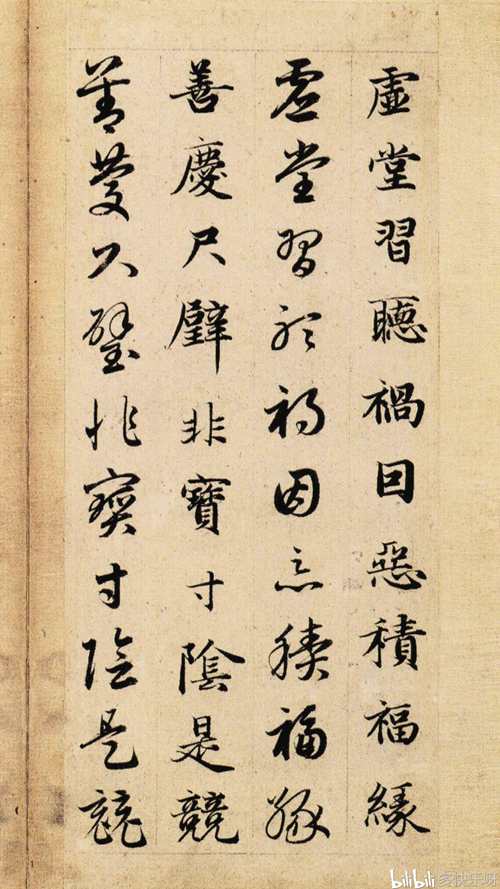 虛堂習聽禍因惡積福緣
虛堂習聽禍因惡積福緣
善慶尺璧非寶寸陰是競
善慶尺璧非寶寸陰是競
bilibili